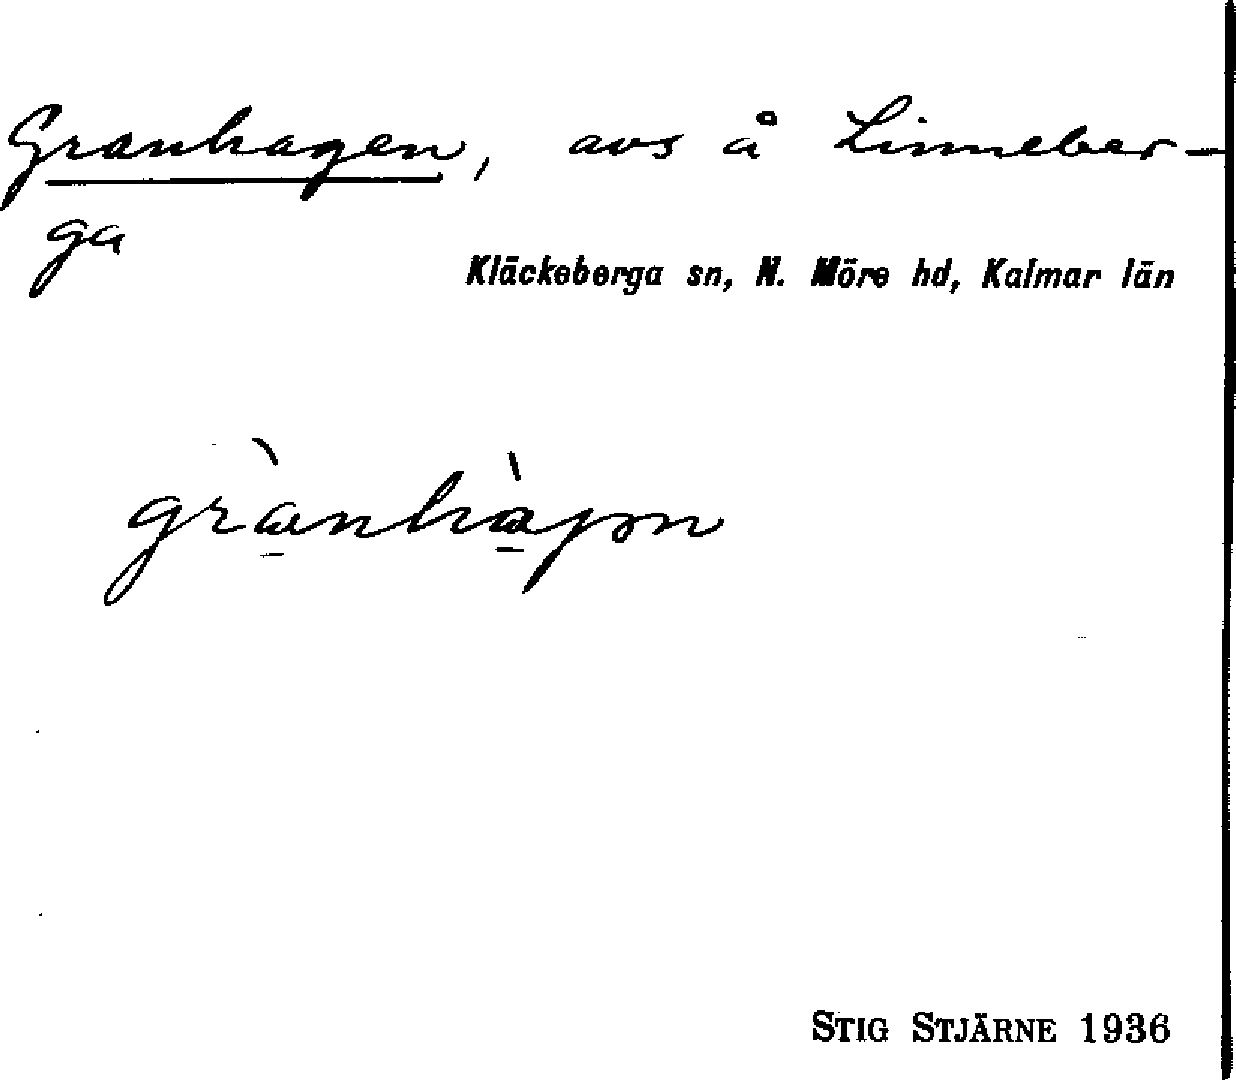 Granhagen, avs å Linneber-
ga
Kläckeberga sn, N. Möre hd, Kalmar län
grànhàgən
STIG STJÄRNE 1936